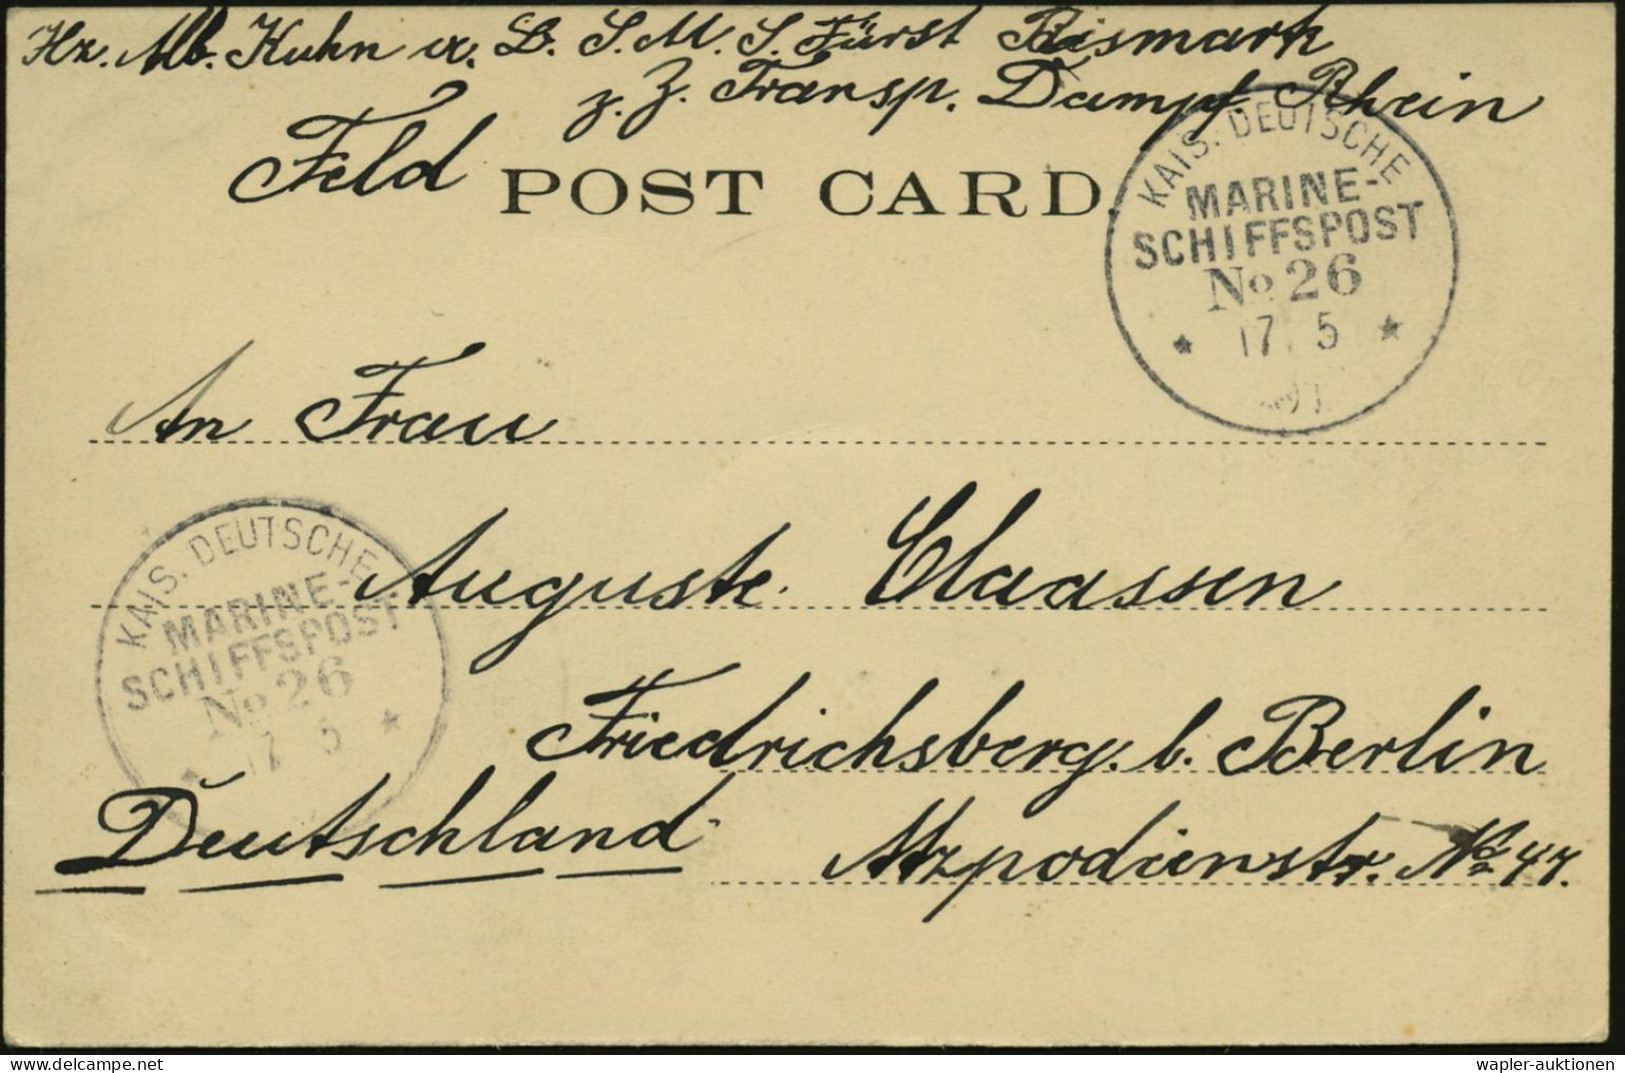 Hz. Mb. Kuhn a. B. S.M.S. Fürst Bismark
z. Z. Transp. Dampf. Rhein
Feld POST CARD.
KAIS. DEUTSCHE
MARINE-
SCHIFFSPOST
No 26
17. 5
An Frau
Auguste Claassen
KAIS. DEUTSCHE
MARINE-
SCHIFFSPOST
No 26
17 5
Friedrichsberg. b. Berlin
Deutschland
No 47.
wapler-auktionen